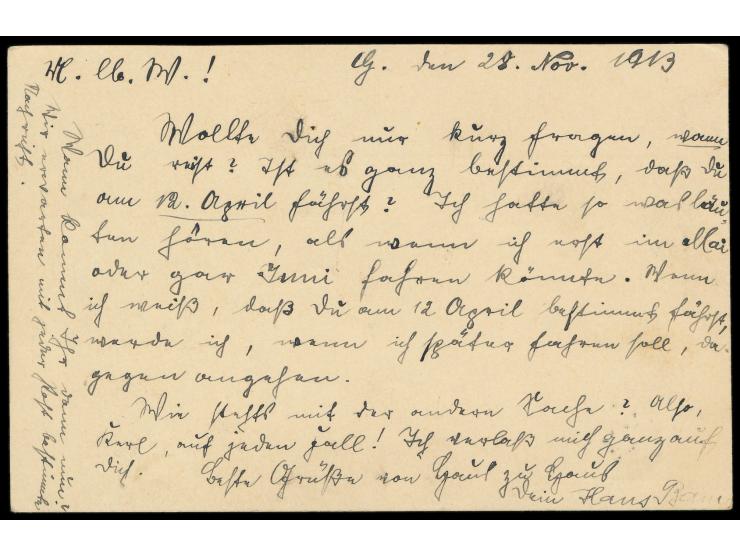 M. lb. W.! G. den 28. Nov. 1913
Wollte Dich nur kurz fragen, wann
Du reist? Ist es ganz bestimmt, daß Du
am 12. April fährst? Ich hatte so was läu-
ten hören, als wenn ich erst im Mai
oder gar Juni fahren könnte. Wenn
ich weiß, daß Du am 12 April bestimmt fährst,
werde ich, wenn ich später fahren soll, da-
gegen angehen.
Wie stehts mit der andern Sache? Also,
Kerl, auf jeden Fall! Ich verlaß mich ganz auf
Dich. Beste Grüße von Haus zu Haus
Dein Hans
Wann kommt Ihr denn nun?
Wir erwarten mit jeder Post bestimmte
Nachricht.